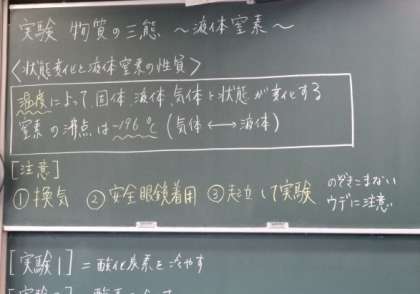 実験 物質の三態 ～液体窒素～
〈状態変化と液体窒素の性質〉
温度によって、固体、液体、気体と状態が変化する
窒素の沸点は-196℃(気体⟷液体)
[注意]
①換気 ②安全眼鏡着用 ③起立して実験 のぞきこまない
ウデに注意
[実験1]=酸化炭素を冷やす